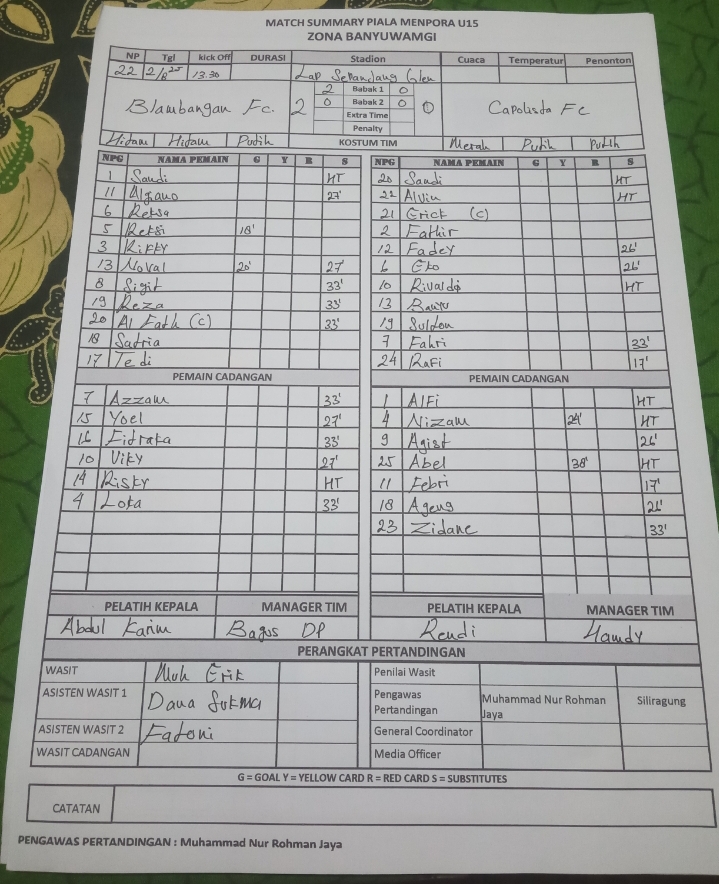 MATCH SUMMARY PIALA MENPORA U15
ZONA BANYUWAMGI
NP Tgl kick Off DURASI Stadion Cuaca Temperatur Penonton
22 2/8 25 13.30 Lap
Blambangan Fc. 2 2 Babak 1 0 0 Capolista FC
0 Babak 2 0
Extra Time
Penalty
Hidam Hidam Putih KOSTUM TIM Merah Putih Putih
NPG NAMA PEMAIN G Y R S NPG NAMA PEMAIN G Y R S
1 Sandi HT 20 Sandi HT
11 27' 22 Alvin HT
6 Reksa 21 Erick (C)
5 Reksi 18' 2 Fathir
3 Rikky 12 Fadey 26'
13 Noval 20' 27' 6 Eko 26'
8 Sigit 33' 10 Rivaldo HT
19 Reza 33' 13
20 Al Fath (C) 33' 19 Suldon
18 Satria 7 Fahri 33'
17 Tedi 24 Rafi 17'
PEMAIN CADANGAN PEMAIN CADANGAN
7 Azzam 33' 1 Alfi HT
15 Yoel 27' 4 Nizam 24' HT
16 Fidraka 33' 9 Agist 26'
10 Viky 27' 25 Abel 38' HT
14 Risky HT 11 Febri 17'
4 Loka 33' 18 Ageng 26'
23 Zidane 33'
PELATIH KEPALA MANAGER TIM PELATIH KEPALA MANAGER TIM
Abdul Karim Bagus DP Rendi Handy
PERANGKAT PERTANDINGAN
WASIT Muh Erik Penilai Wasit
ASISTEN WASIT 1 Dana Sukma Pengawas Pertandingan Muhammad Nur Rohman Jaya Siliragung
ASISTEN WASIT 2 Fatoni General Coordinator
WASIT CADANGAN Media Officer
G = GOAL Y = YELLOW CARD R = RED CARD S = SUBSTITUTES
CATATAN
PENGAWAS PERTANDINGAN : Muhammad Nur Rohman Jaya